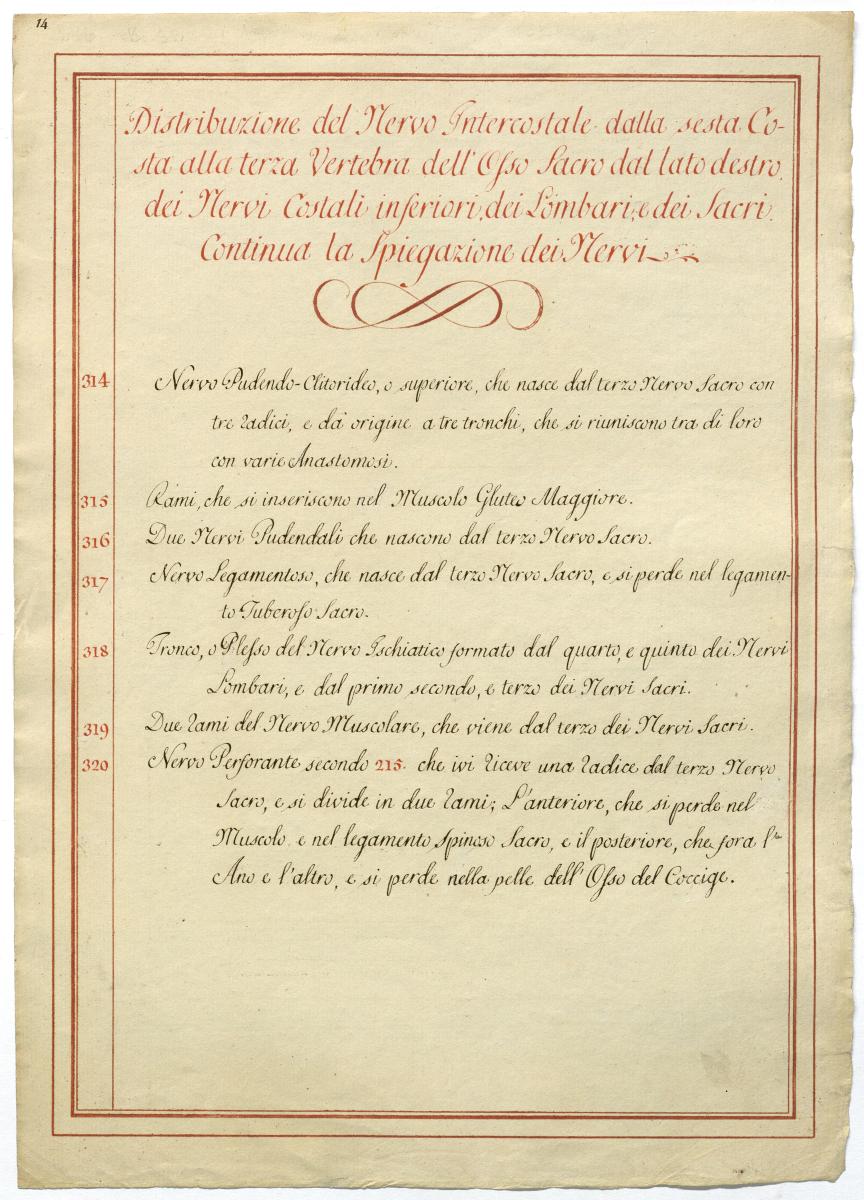 14
Distribuzione del Nervo Intercostale dalla sesta Co-
sta alla terza Vertebra dell'Osso Sacro dal lato destro,
dei Nervi Costali inferiori, dei Lombari, e dei Sacri.
Continua la Spiegazione dei Nervi
314 Nervo Pudendo-Clitorideo, o superiore, che nasce dal terzo Nervo Sacro con
tre radici, e dà origine a tre tronchi, che si riuniscono tra di loro
con varie Anastomosi.
315 Rami, che si inseriscono nel Muscolo Gluteo Maggiore.
316 Due Nervi Pudendali che nascono dal terzo Nervo Sacro.
317 Nervo Legamentoso, che nasce dal terzo Nervo Sacro, e si perde nel legamen-
to Tuberoso Sacro.
318 Tronco, o Plesso del Nervo Ischiatico formato dal quarto, e quinto dei Nervi
Lombari, e dal primo secondo, e terzo dei Nervi Sacri.
319 Due rami del Nervo Muscolare, che viene dal terzo dei Nervi Sacri.
320 Nervo Perforante secondo 215. che ivi riceve una radice dal terzo Nervo
Sacro, e si divide in due rami; L'anteriore, che si perde nel
Muscolo e nel legamento Spinoso Sacro, e il posteriore, che fora l'
Ano e l'altro, e si perde nella pelle dell'Osso del Coccige.